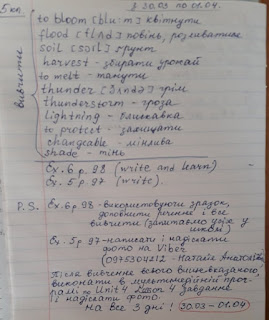 5 кл.
з 30.03 по 01.04.
вивчити
to bloom [blu:m] квітнути
flood [flʌd] повінь, розливатися
soil [sɔil] ґрунт
harvest - збирати урожай
to melt - танути
thunder [θʌndə] грім
thunderstorm - гроза
lightning - блискавка
to protect - захищати
changeable - мінлива
shade - тінь
Ex. 6 p. 98 (write and learn)
Ex. 5 p. 97 (write).
P.S. Ex. 6 p. 98 - використовуючи зразок,
доповнити речення і все
вивчити (запитаємо усіх у
школі)
Ex. 5 p. 97 - написати і надіслати
фото на Viber
(0975304212 - Наталія
Після вивчення всього вищевказаного,
виконати в мультимедійній програмі
по Unit 4 Lesson 4 завдання
і надіслати фото.
На все 3 дні! (30.03 - 01.04)